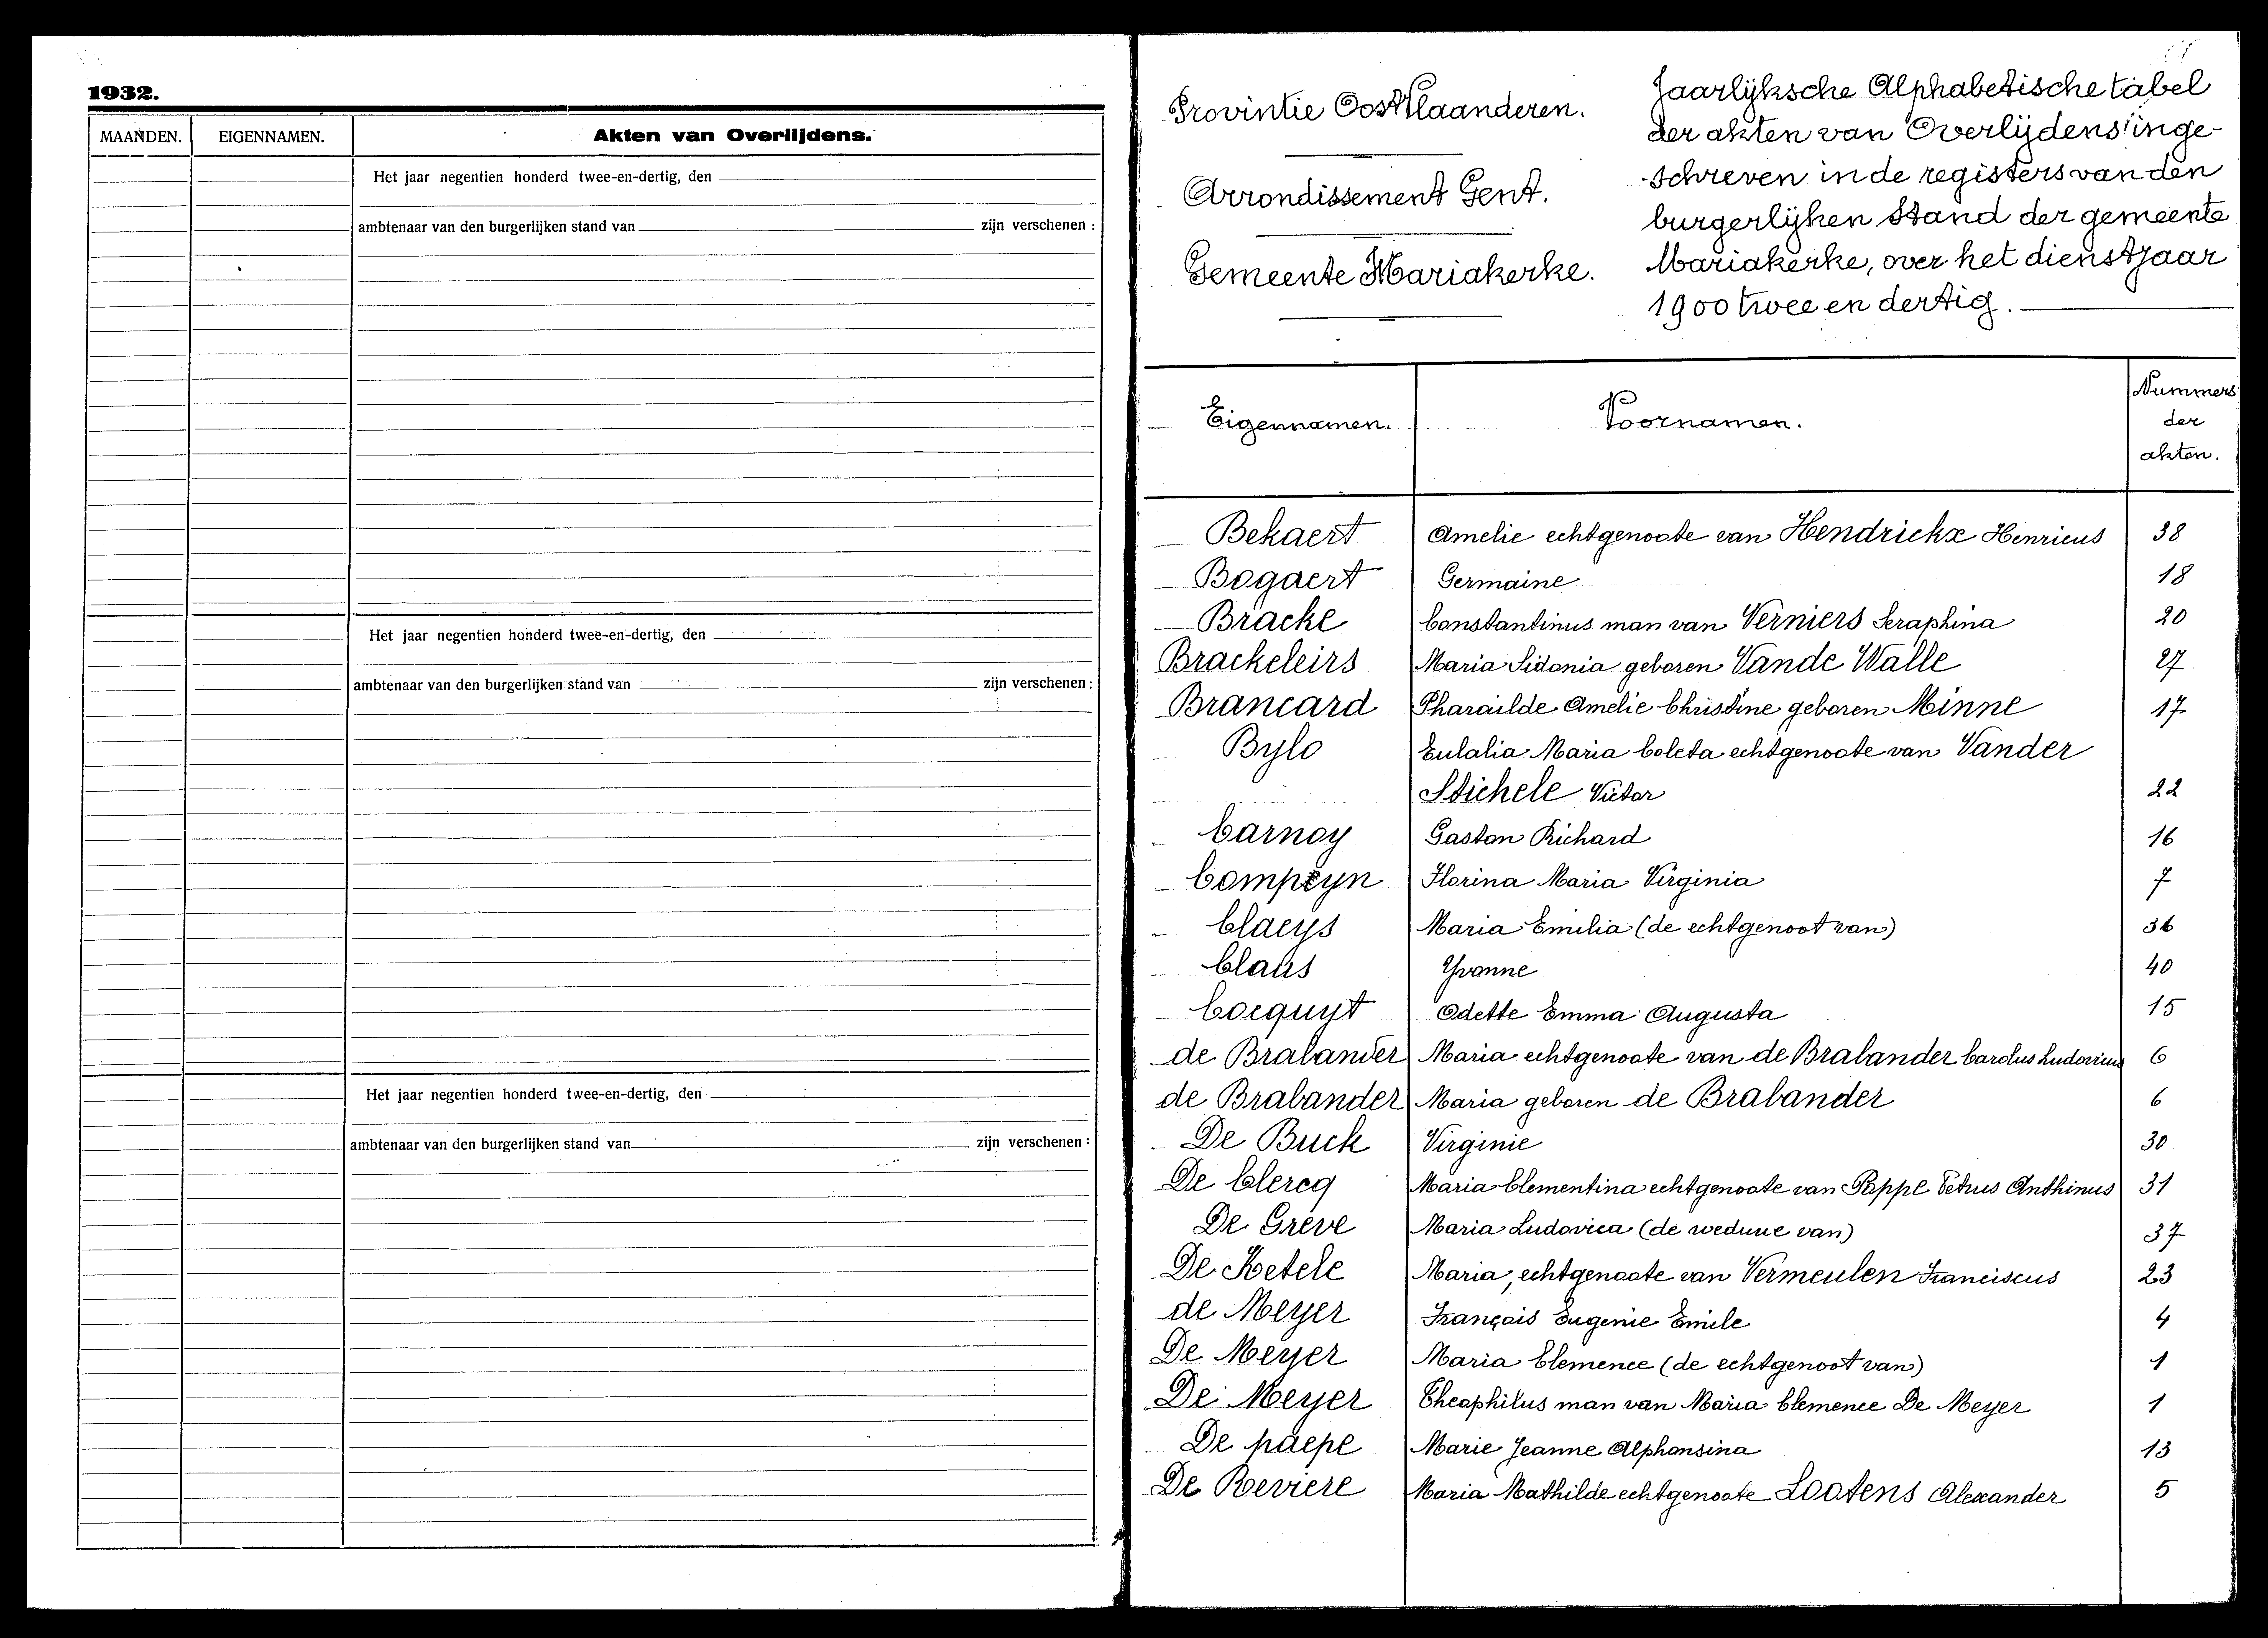 1932.
MAANDEN. EIGENNAMEN. Akten van Overlijdens.
Het jaar negentien honderd twee-en-dertig, den
ambtenaar van den burgerlijken stand van zijn verschenen :
Het jaar negentien honderd twee-en-dertig, den
ambtenaar van den burgerlijken stand van zijn verschenen :
Het jaar negentien honderd twee-en-dertig, den
ambtenaar van den burgerlijken stand van zijn verschenen :
Provintie Oost Vlaanderen.
Arrondissement Gent.
Gemeente Mariakerke.
Jaarlijksche Alphabetische tabel
der akten van Overlijdens inge-
-schreven in de registers van den
burgerlijken Stand der gemeente
Mariakerke, over het dienstjaar
1900 twee en dertig.
Eigennamen. Voornamen. Nummers
der
akten.
Bekaert Amelie echtgenoote van Hendrickx Henricus 38
Bogaert Germaine 18
Bracke Constantinus man van Verniers Seraphina 20
Brackeleirs Maria Sidonia geboren Vande Walle 27
Brancard Pharaïlde Amelie Christine geboren Minne 17
Bylo Eulalia Maria Coleta echtgenoote van Vander
Stichele Victor 22
Carnoy Gaston Richard 16
Compeyn Florina Maria Virginia 7
Claeys Maria Emilia (de echtgenoot van) 36
Claus Yvonne 40
Cocquyt Odette Emma Augusta 15
de Brabander Maria echtgenoote van de Brabander Carolus Ludovicus 6
de Brabander Maria geboren de Brabander 6
De Buck Virginie 30
De Clercq Maria Clementina echtgenoote van Poppe Petrus Anthinus 31
De Grève Maria Ludovica (de weduwe van) 37
De Ketele Maria, echtgenoote van Vermeulen Franciscus 23
de Meyer François Eugenie Emile 4
De Meyer Maria Clemence (de echtgenoot van) 1
De Meyer Theophilus man van Maria Clemence De Meyer 1
De paepe Marie Jeanne Alphonsina 13
De Reviere Maria Mathilde echtgenoote Lootens Alexander 5